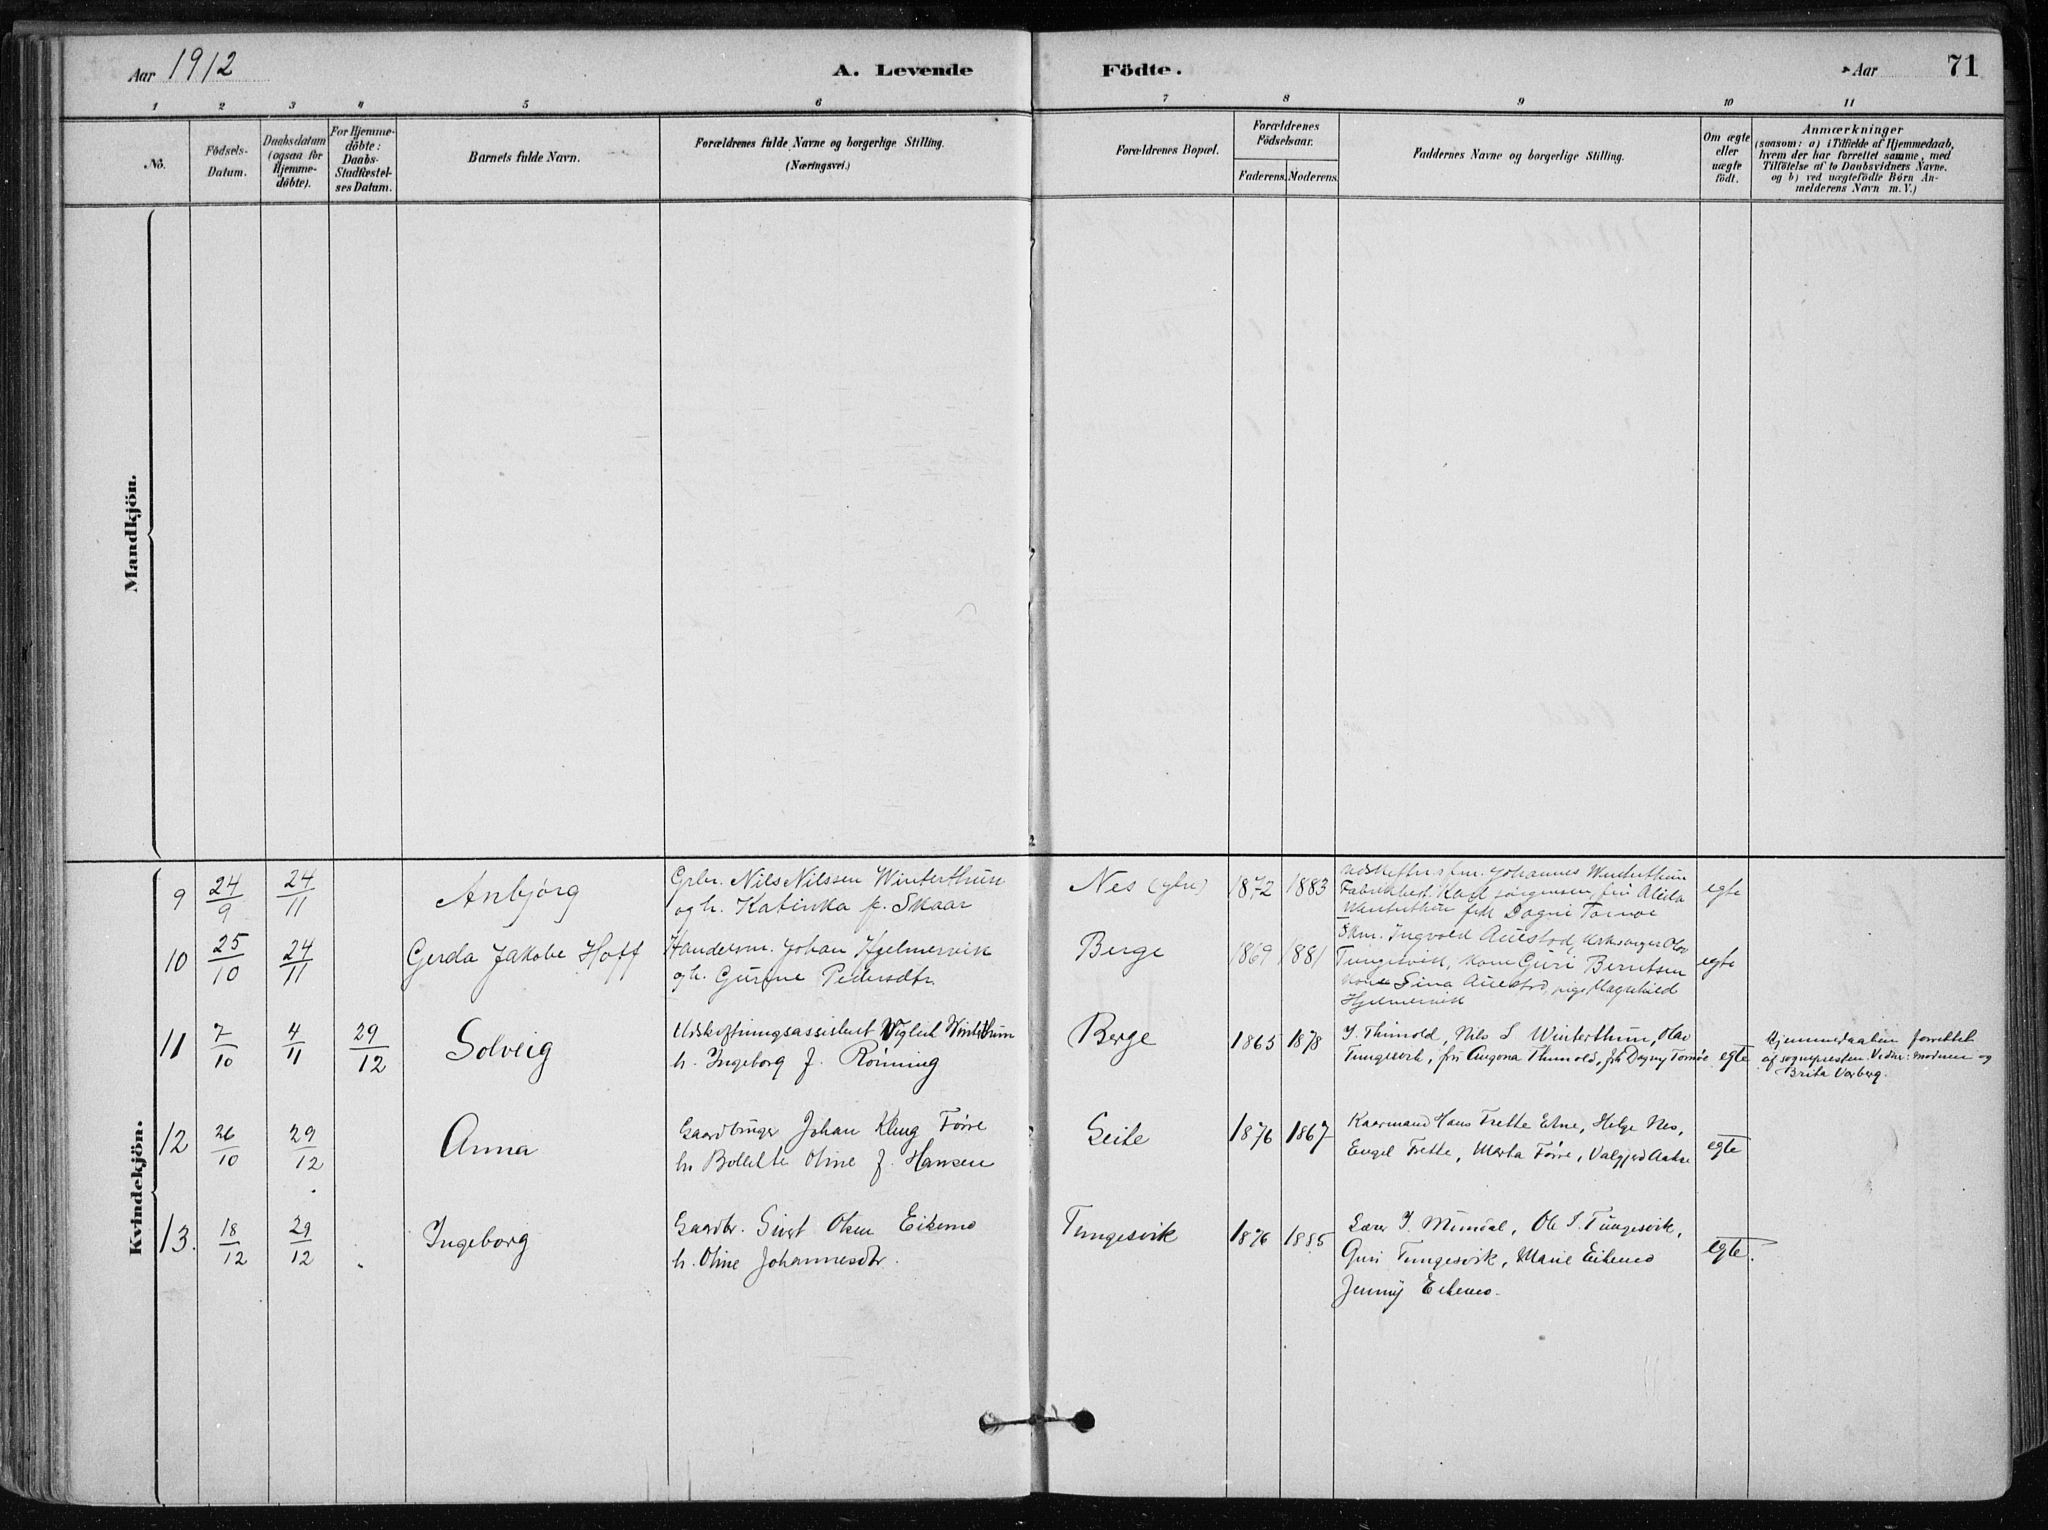 Aar 1912
A. Levende Födte.
Aar
71
1 2 3 4 5 6 7 8 9 10 11
Nö.
Födsels-Datum.
Daabsdatum (ogsaa for Hjemme-döbte).
For Hjemme-döbte: Daabs-Stadfæstel-ses Datum.
Barnets fulde Navn.
Forældrenes fulde Navne og borgerlige Stilling. (Næringsvei.)
Forældrenes Bopæl.
Forældrenes Födselsaar.
Faderens. Moderens.
Faddernes Navne og borgerlige Stilling.
Om ægte eller uægte födt.
Anmærkninger
(saasom: a) i Tilfælde af Hjemmedaab,
hvem der har forrettet samme, med
Tilföielse af to Daabsvidners Navne.
og b) ved uægtefödte Börn An-
melderens Navn m. V.)
Mandkjön.
Kvindekjön.
9 24/9 24/11 Anbjørg
Gbr. Nils Nilssen Winterthun
og h. Katinka f. Skaar
Nes 1872 1883
Johannes Winterthun
Karl Jørgensen, fru Alida
Winterthun frk Dagni Tornøe
egte
10 25/10 24/11 Gerda Jakobe Hoff
Handelsm. Johan Hjelmervik
og h. Gurine Pedersdtr.
Berge 1869 1881
Skm. Ingvald Auestad, Kirkesanger Olav
Tungesvik, kone Guri Berntsen
kone Sina Auestad, pige Magnhild
Hjelmervik
egte
11 7/10 4/11 29/12 Solveig
Udskiftningsassistent Viglik Winterthun
h. Ingeborg f. Rönning
Berge 1865 1878
I. Thimold, Nils S Winterthun, Olav
Tungesvik, fru Augona Thimold, frk Dagny Tornöe
egte
Hjemmedaaben forrettet
af sognepresten. Vidner: moderen og
Brita Varberg.
12 26/10 29/12 Anna
Gaardbruger Johan Klung Førre
h. Bolette Oline f. Hansen
Leite 1876 1867
Kaarmand Hans Frette Etne, Helge Nes,
Engel Frette, Marta Førre, Valgjerd Aakre
egte
13. 18/12 29/12 Ingeborg
Gaardbr. Sivert Olsen Eikemo
h. Oline Johannesdtr.
Tungesvik 1876 1885
Lærer I. Mundal, Ole S. Tungesvik,
Guri Tungesvik, Marie Eikemo
Jenny Eikemo.
egte.